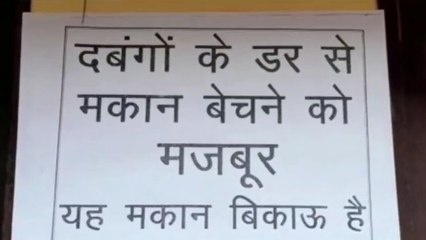 दबंगों के डर से
मकान बेचने को
मजबूर
यह मकान बिकाऊ है